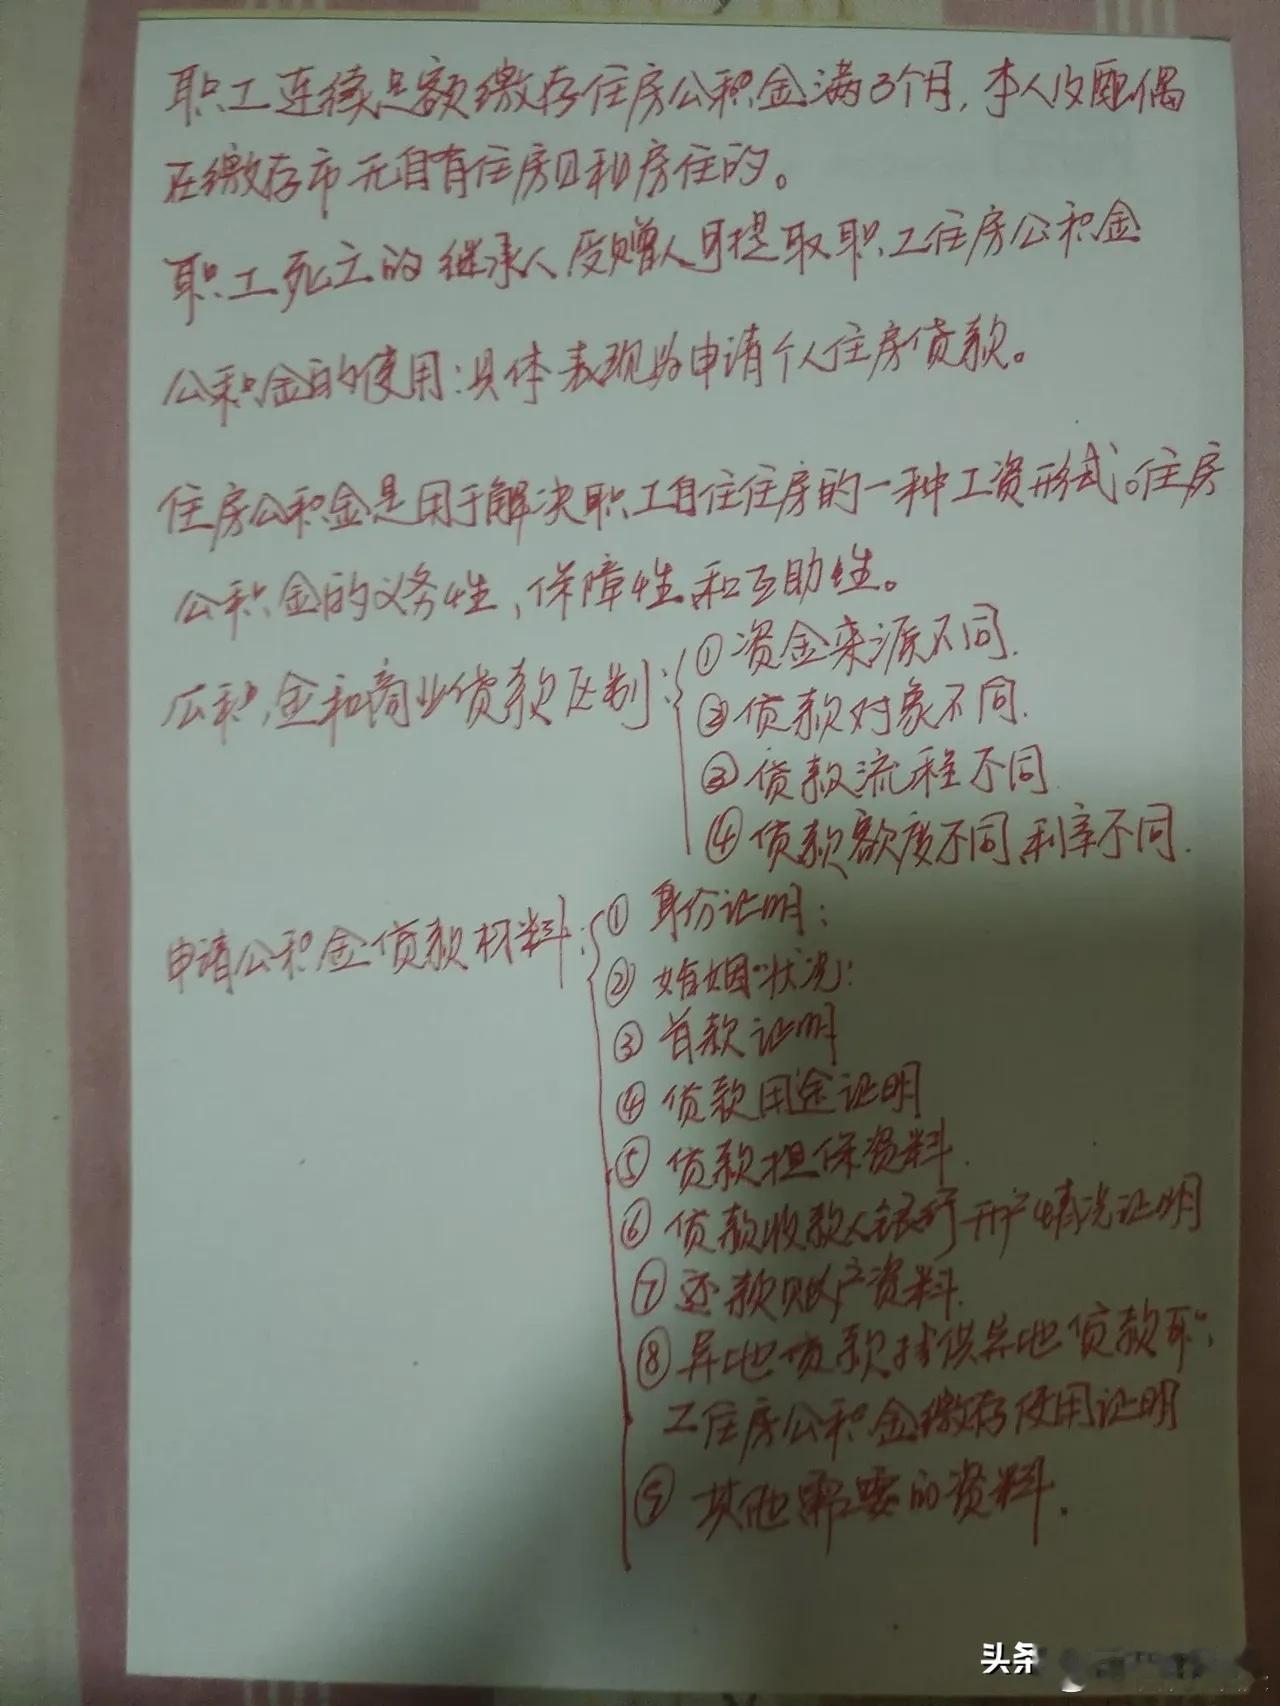 职工连续足额缴存住房公积金满3个月,本人及配偶
在缴存市无自有住房且租房住的。
职工死亡的继承人受赠人可提取职工住房公积金
公积金的使用:具体表现为申请个人住房贷款。
住房公积金是用于解决职工自住住房的一种工资形式。住房
公积金的义务性、保障性和互助性。
公积金和商业贷款区别:
①资金来源不同.
②贷款对象不同.
③贷款流程不同
④贷款额度不同利率不同.
申请公积金贷款材料:
①身份证明:
②婚姻状况:
③首款证明
④贷款用途证明
⑤贷款担保资料.
⑥贷款收款人银行开户情况证明
⑦还款账户资料.
⑧异地贷款提供异地贷款职
工住房公积金缴存使用证明
⑨其他需要的资料.
头条